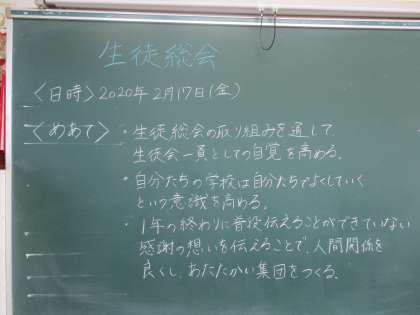 生徒総会
〈日時〉2020年2月17日(金)
〈めあて〉・生徒総会の取り組みを通して
生徒会一員としての自覚を高める。
・自分たちの学校は自分たちでよくしていく
という意識を高める。
・1年の終わりに普段伝えることができていない
感謝の想いを伝えることで、人間関係を
良くし、あたたかい集団をつくる。